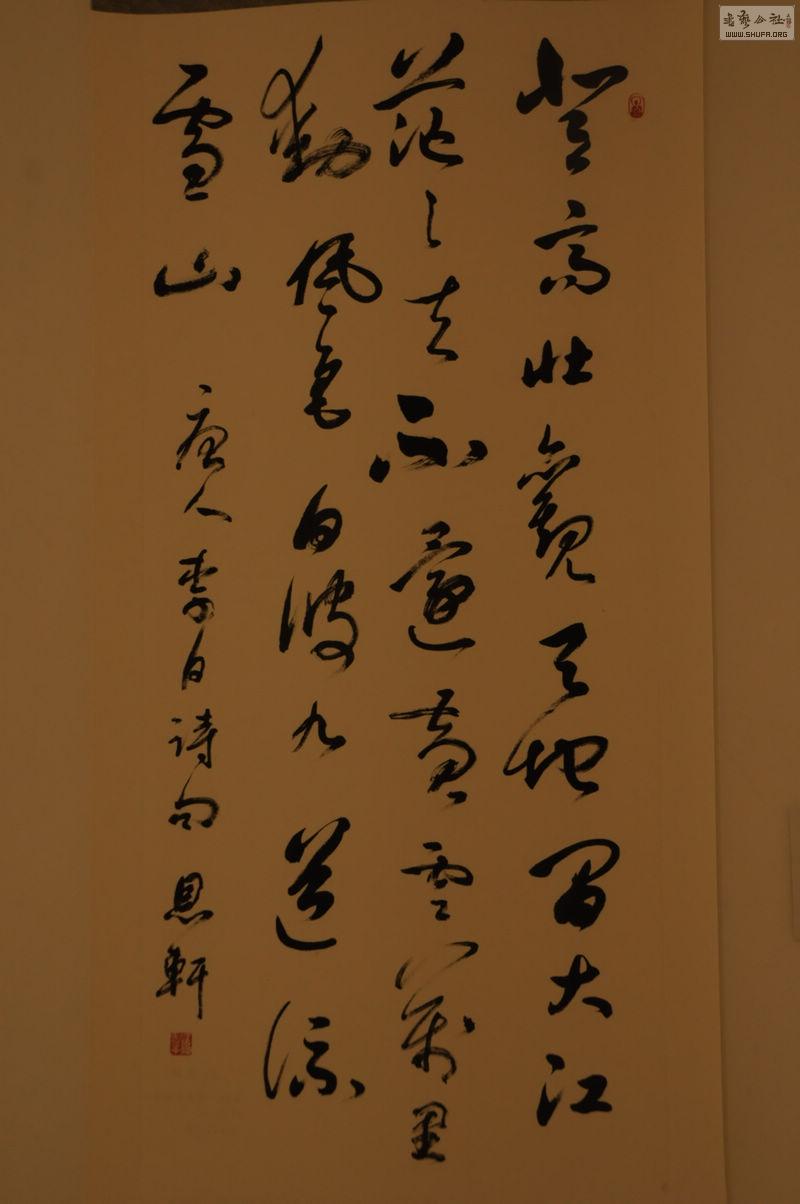 登高壮觀天地間大江
茫〻去不還黄雲萬里
動風色白波九道流
雪山
唐人李白詩句 恩軒
書藝公社
WWW.SHUFA.ORG